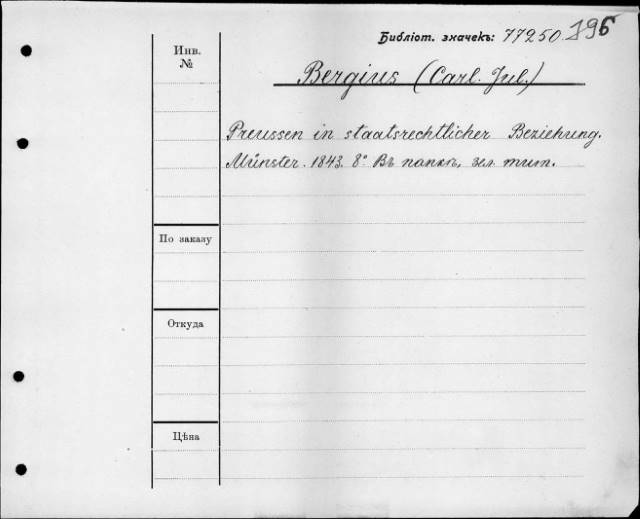 Библіот. значекъ: 77250.
195
Инв.
№
Bergius (Carl. Jul.)
Preussen in staatsrechtlicher Beziehung.
Münster. 1843. 8° Въ папкѣ, зел. тит.
По заказу
Откуда
Цѣна